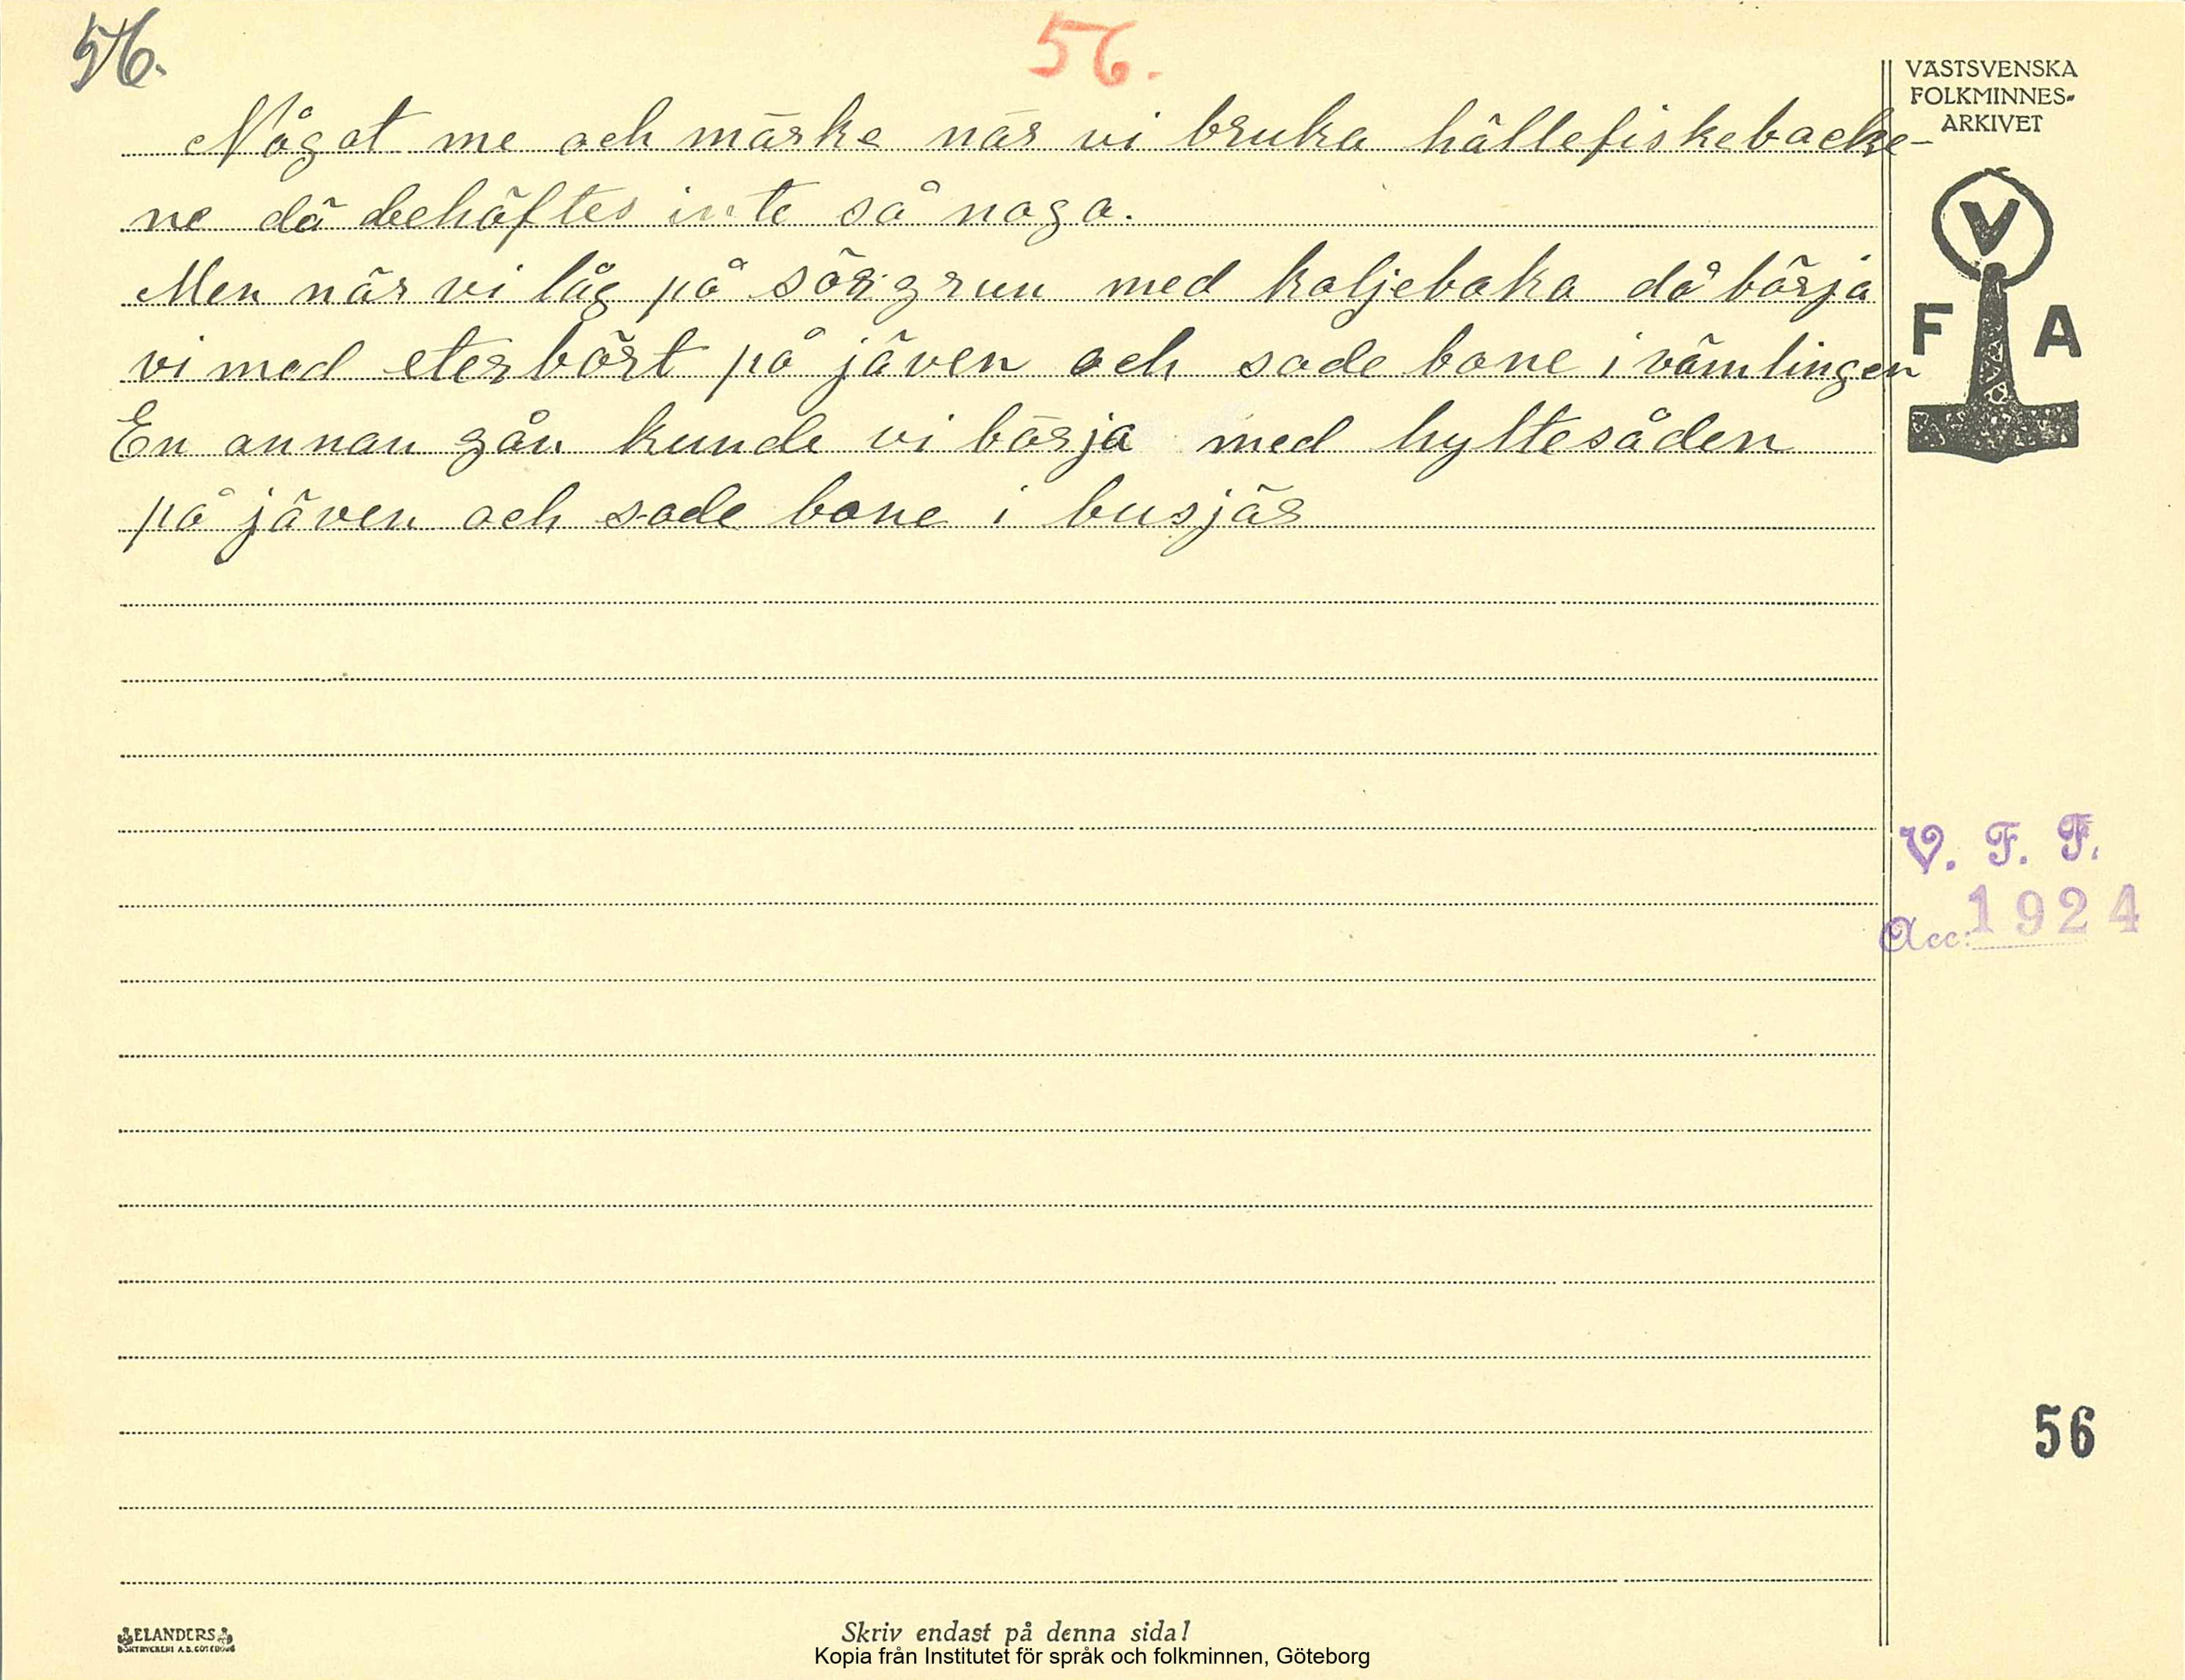 56.
56.
VÄSTSVENSKA
FOLKMINNES-
ARKIVET
Något me och märke när vi bruka hällefiskebacke-
ne då behöftes inte så noga.
Men när vi låg på sörgrun med koljebaka då börja
vi med eterbört på jäven och sade bone i vämlingen
En annan gån kunde vi börja med hyltesåden
på jäven och sade bone i busjär
V
F A
V. F. F.
Acc: 1924
56
ELANDERS
BOKTRYCKERI A.B. GÖTEBORG
Skriv endast på denna sida!
Kopia från Institutet för språk och folkminnen, Göteborg